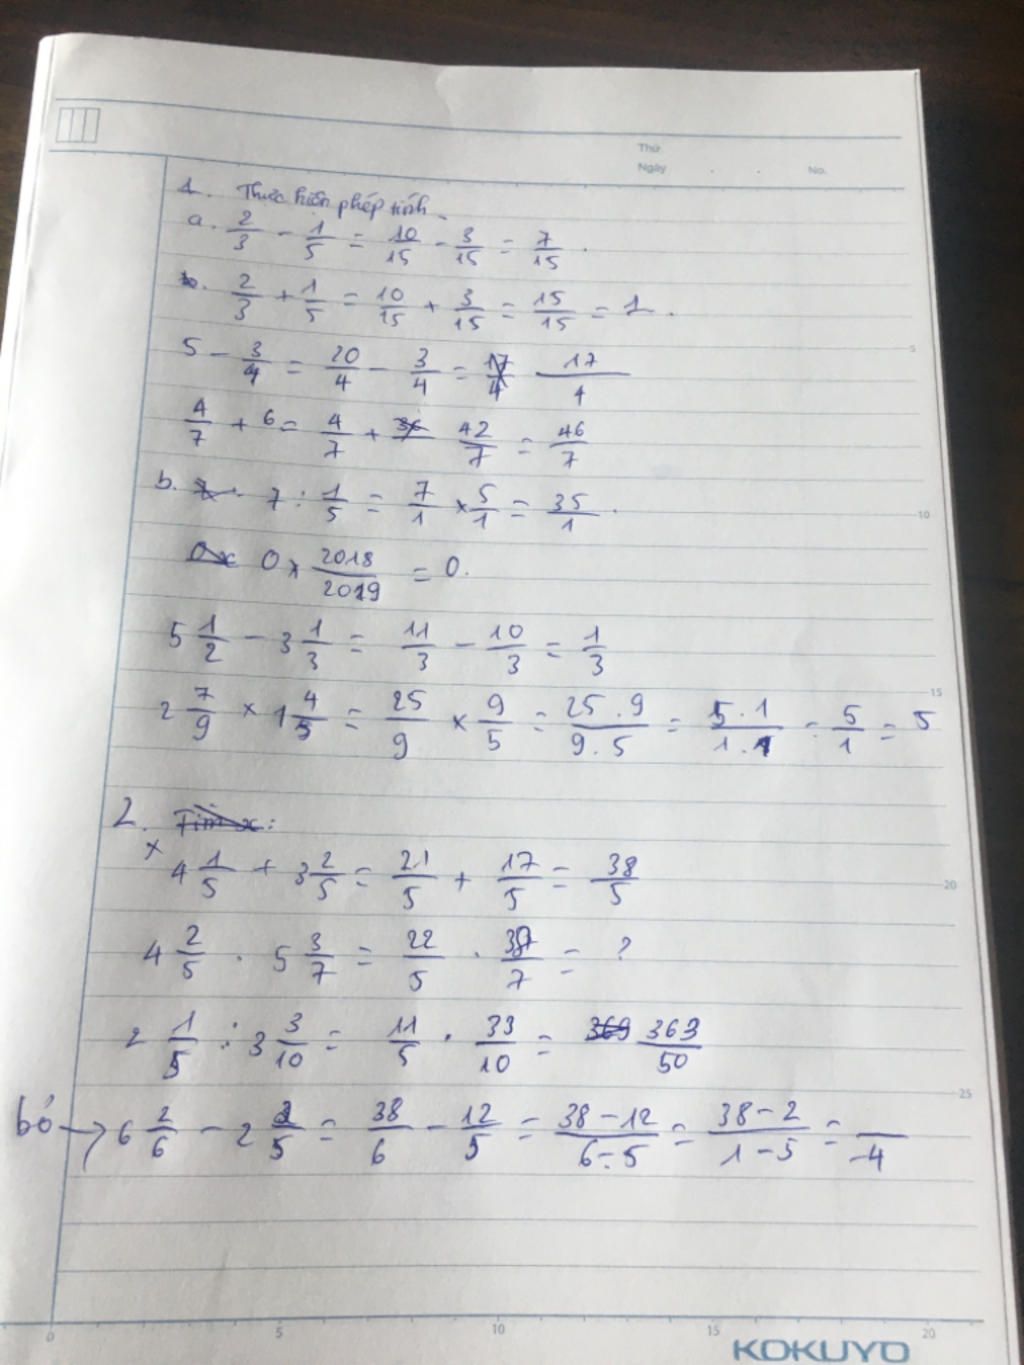 Thứ
Ngày . . No.
1. Thực hiện phép tính.
a. 2/3 - 1/5 = 10/15 - 3/15 = 7/15 .
2/3 + 1/5 = 10/15 + 3/15 = 15/15 = 1.
5 - 3/4 = 20/4 - 3/4 = 17/4 17/4
4/7 + 6 = 4/7 + 36 42/7 = 46/7
b. 7 : 1/5 = 7/1 × 5/1 = 35/1 .
0x 0 × 2018/2019 = 0.
5 1/2 - 3 1/3 = 11/3 - 10/3 = 1/3
2 7/9 × 1 4/5 = 25/9 × 9/5 = 25.9/9.5 = 5.1/1.1 = 5/1 = 5
2. Tìm x:
× 4 1/5 + 3 2/5 = 21/5 + 17/5 = 38/5
4 2/5 . 5 3/7 = 22/5 . 38/7 = ?
2 1/5 : 3 3/10 = 11/5 . 33/10 = 363 363/50
bỏ → 6 2/6 - 2 2/5 = 38/6 - 12/5 = 38-12/6-5 = 38-2/1-5 = /-4
5
10
15
20
25
0 5 10 15 20
KOKUYO